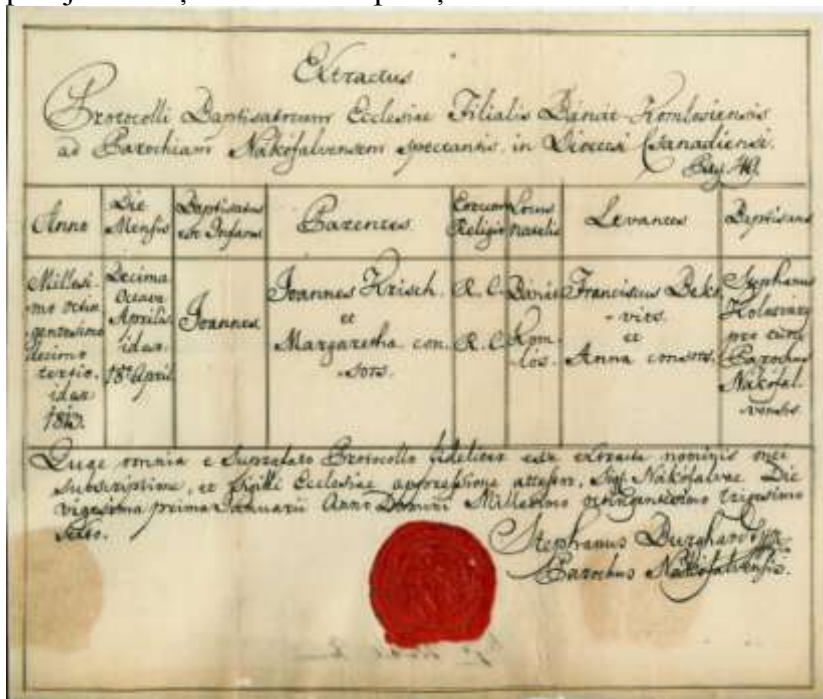 Extractus
Protocolli Baptisatorum Ecclesiae Filialis Bánát-Komlosiensis
ad Parochiam Nákófalvensem spectantis, in Dioecesi Csanadiensi.
Pag. 49.
Anno
Die Mensis
Baptisatus est Infans
Parentes
Eorum Religio
Locus natalis
Levantes
Baptisans
Millesi-
mo octin
gentesimo
decimo
tertio.
idest
1813.
Decima
Octava
Aprilis
idest
18a April
Joannes
Joannes Krisch.
et
Margaretha con
-sors.
R. C.
R. C.
Bánát
Kom-
los.
Franciscus Beko
-vits.
et
Anna consors.
Stephanus
pro tunc
Parochus
Nákófal-
vensis.
Quae omnia e Supracitato Protocollo fideliter esse extracta nominis mei
subscriptione, et Sigilli Ecclesiae appressione attestor, Sig. Nákófalvae Die
vigesima prima Januarii Anno Domini Millesimo octingentesimo trigesimo
Sexto.
Stephanus
Parochus Nákófalvensis.